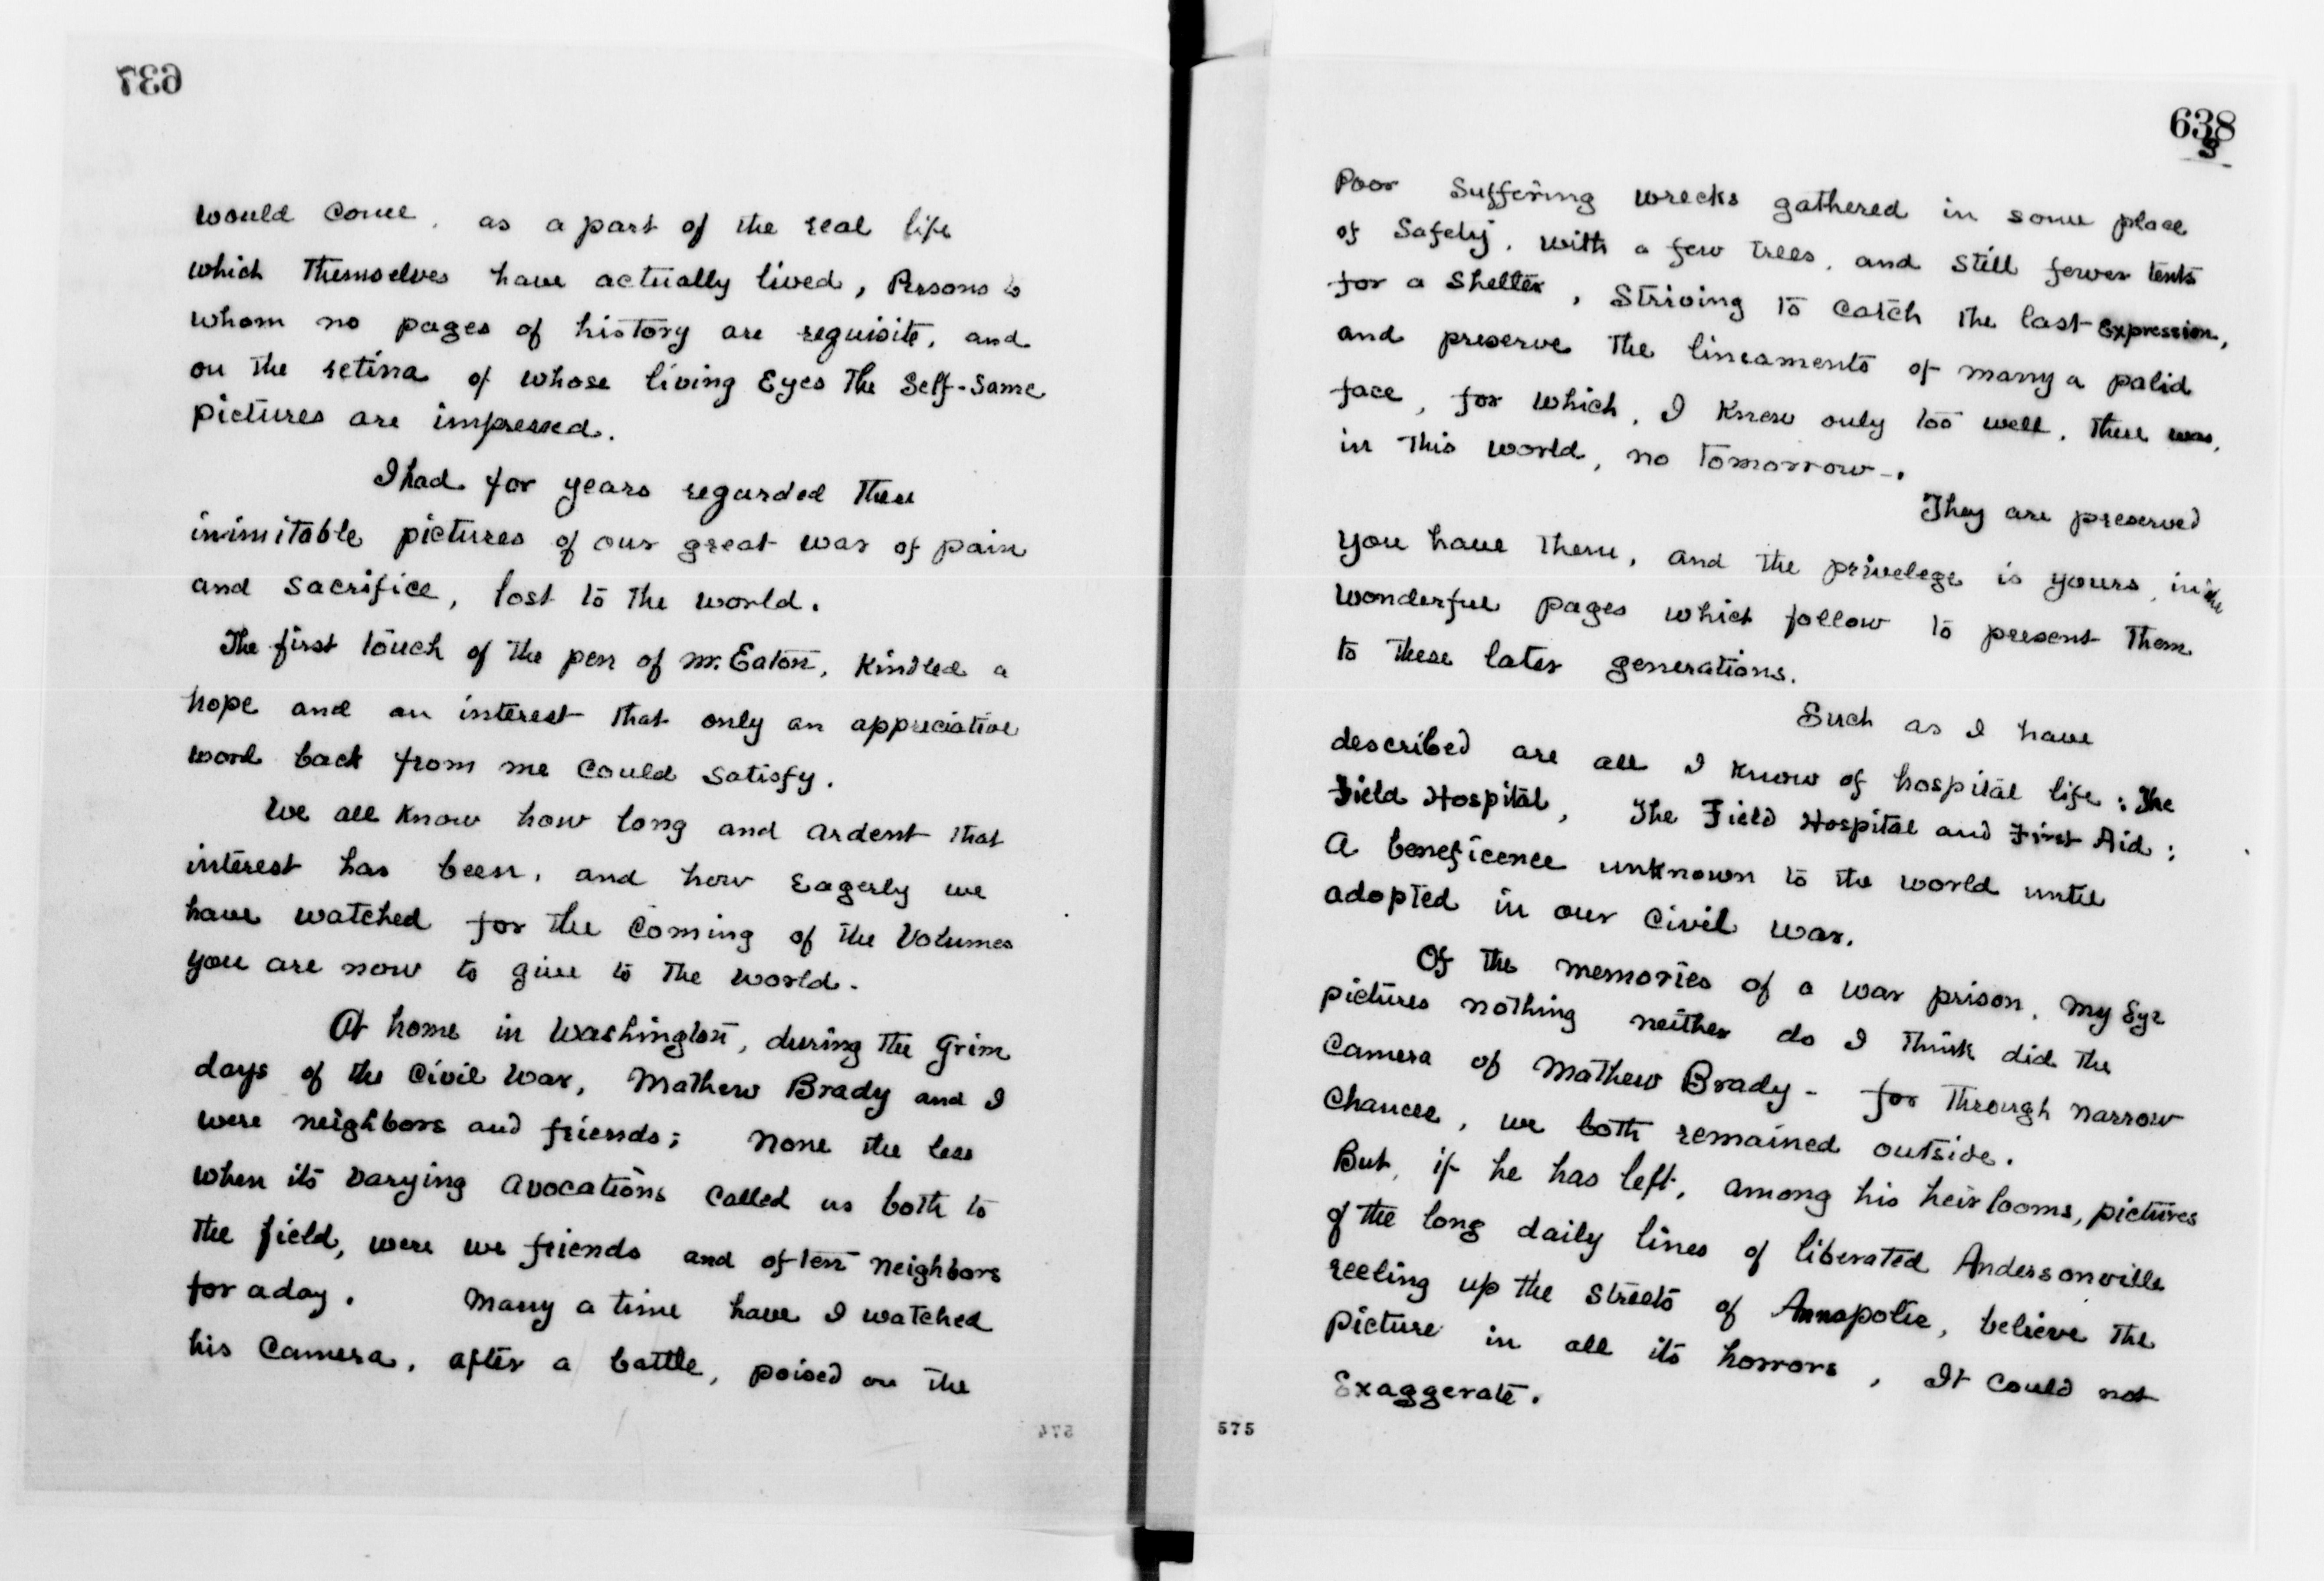 637
would come, as a part of the real life
which themselves have actually lived, Persons to
whom no pages of history are requisite, and
on the retina of whose living Eyes The Self-Same
pictures are impressed.
I had for years regarded these
inimitable pictures of our great war of pain
and sacrifice, lost to the world.
The first touch of the pen of Mr. Eaton, Kindled a
hope and an interest that only an appreciative
word back from me could satisfy.
We all know how long and ardent that
interest has been, and how Eagerly we
have watched for the coming of the Volumes
you are now to give to the world.
At home in Washington, during the Grim
days of the Civil War, Mathew Brady and I
were neighbors and friends; none the less
when its varying avocations called us both to
the field, were we friends and often neighbors
for a day. Many a time have I watched
his Camera, after a battle, poised on the
574
638
3
Poor Suffering wrecks gathered in some place
of Safety, with a few trees, and still fewer tents
for a Shelter, Striving to catch the last Expression,
and preserve the lineaments of many a palid
face, for which, I knew only too well, there was,
in this world, no tomorrow-.
They are preserved
you have them, and the privelege is yours, in the
wonderful pages which follow to present them
to these later generations.
Such as I have
described are all I know of hospital life: The
Field Hospital, The Field Hospital and First Aid:
A beneficence unknown to the world until
adopted in our Civil war.
Of the memories of a war prison, My Eye
pictures nothing neither do I think did the
Camera of Mathew Brady - for through narrow
chances, we both remained outside.
But, if he has left, among his heirlooms, pictures
of the long daily lines of liberated Andersonville
reeling up the streets of Annapolis, believe the
picture in all its horrors, It could not
Exaggerate.
575